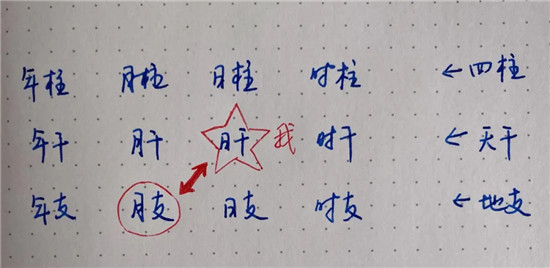 年柱 月柱 日柱 时柱 ←四柱
年干 月干 月干 我 时干 ←天干
年支 月支 日支 时支 ←地支